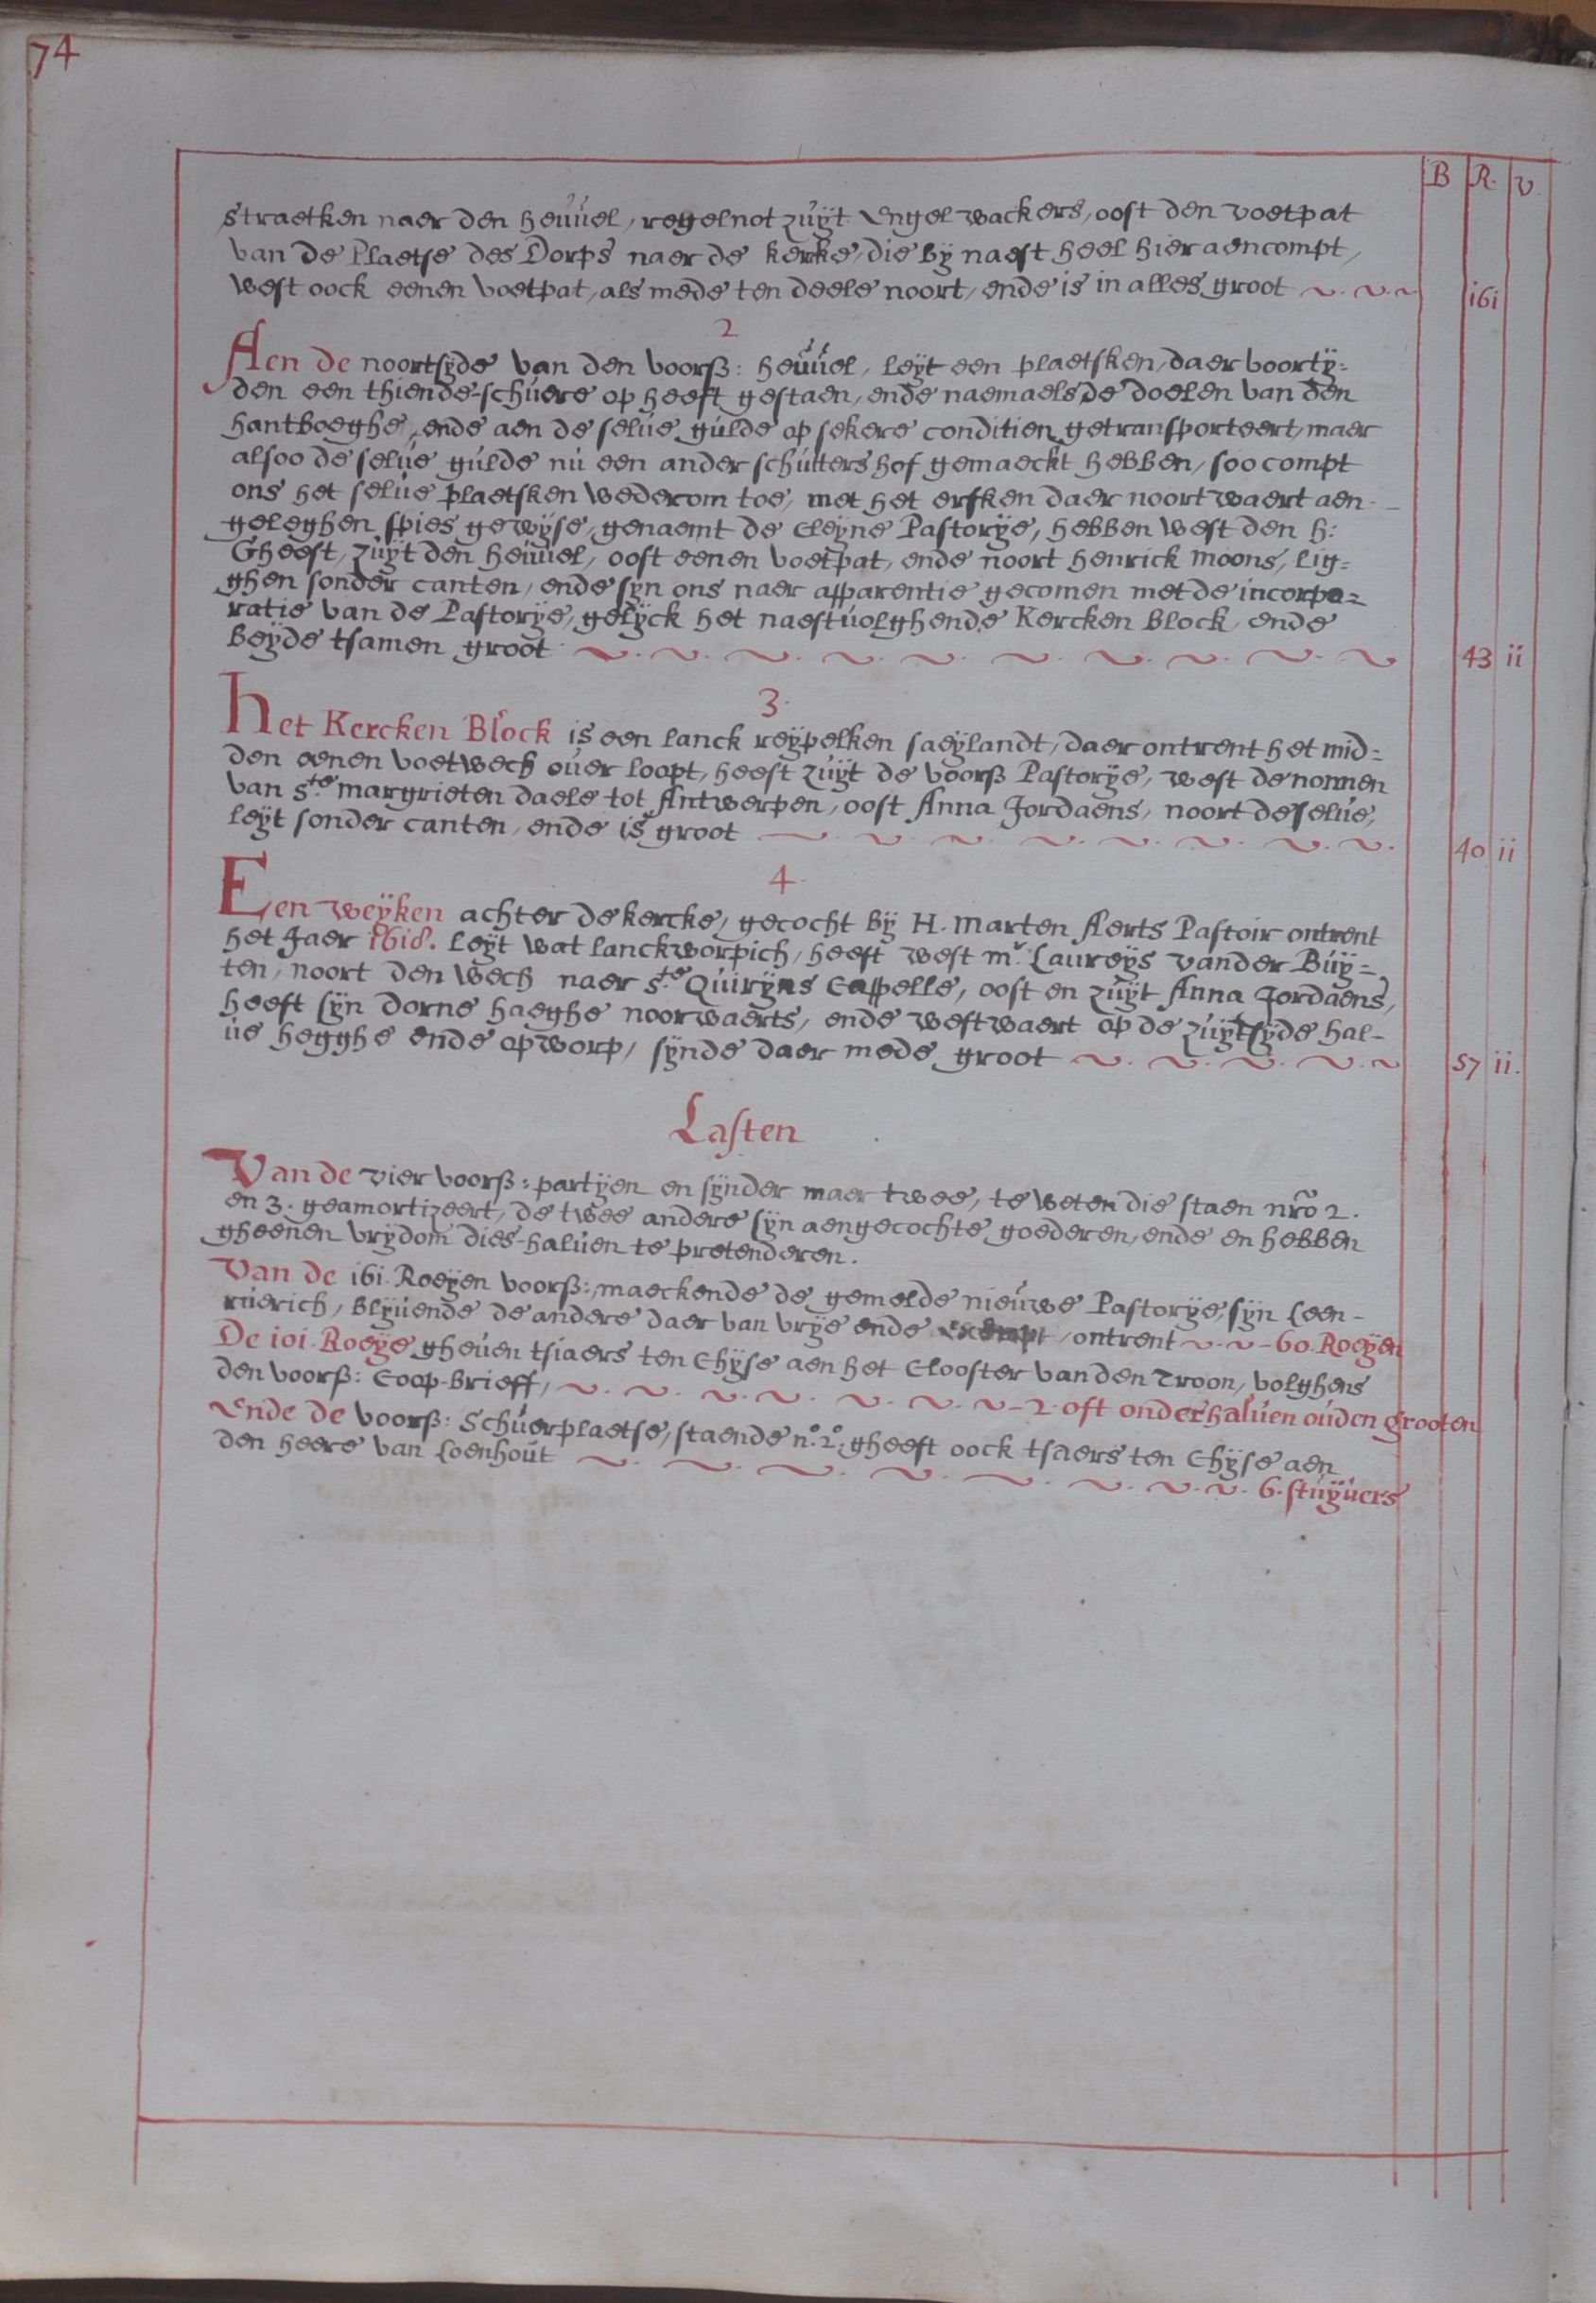 74
B R. V.
straetken naer den heuuel, regelnot zuÿt Engel wackers, oost den voetpat
van de Plaetse des Dorps naer de kerke, die bÿ naest heel hier aencompt,
west oock eenen voetpat, als mede ten deele noort, ende is in alles groot 161
2
Aen de noortsÿde van den voorß: heuuel, leÿt een plaetsken, daer voortÿ=
den een thiende-schuere op heeft gestaen, ende naemaels de doelen van den
hantboeghe, ende aen de selue gulde op sekere conditien getransporteert, maer
alsoo de selue gulde nu een ander schutters hof gemaeckt hebben, soo compt
ons het selue plaetsken wederom toe, met het erfken daer noortwaert aen-
geleghen spies gewÿse, genaemt de cleÿne Pastorÿe, hebben west den H:
Gheest, zuÿt den heuuel, oost eenen voetpat, ende noort Henrick Moons, lig=
ghen sonder canten, ende sÿn ons naer apparentie gecomen met de incorpo=
ratie van de Pastorÿe, gelÿck het naestuolghende Kercken Block, ende
beÿde tsamen groot 43 ii
3.
Het Kercken Block is een lanck reÿpelken saeÿlandt, daer ontrent het mid=
den eenen voetwech ouer loopt, heeft zuÿt de voorß Pastorÿe, west de nonnen
van S.te Margrieten daele tot Antwerpen, oost Anna Jordaens, noort de selue,
leÿt sonder canten, ende is groot 40 ii
4.
Een weÿken achter de kercke, gecocht bÿ H. Marten Aerts Pastoir ontrent
het Jaer 1618. Leÿt wat lanckworpich, heeft west m.r Laureÿs vander Buÿ=
ten, noort den wech naer S.te Quirÿns Cappelle, oost en zuÿt Anna Jordaens,
heeft sÿn dorne haeghe noorwaerts, ende westwaert op de zuÿtsÿde hal-
ue hegghe ende opworp, sÿnde daer mede groot 57 ii.
Lasten
Van de vier voorß: partÿen en sÿnder maer twee, te weten die staen nr̃o 2.
en 3. geamortizeert, de twee andere sÿn aengecochte goederen, ende en hebben
gheenen vrÿdom dies-haluen te pretenderen.
Van de 161 Roeÿen voorß:, maeckende de gemelde nieuwe Pastorÿe, sÿn Leen-
ruerich, blÿuende de andere daer van vrÿe ende exempt, ontrent - 60. Roeÿen
De 101. Roeÿe gheuen tsiaers ten Chÿse aen het Clooster van den Troon, volghens
den voorß: Coop-brieff, - 2. oft onderhaluen ouden grooten
Ende de voorß: Schuerplaetse, staende n.o 2.o, gheeft oock tsaers ten Chÿse aen
den heere van Loenhout 6. stuÿuers